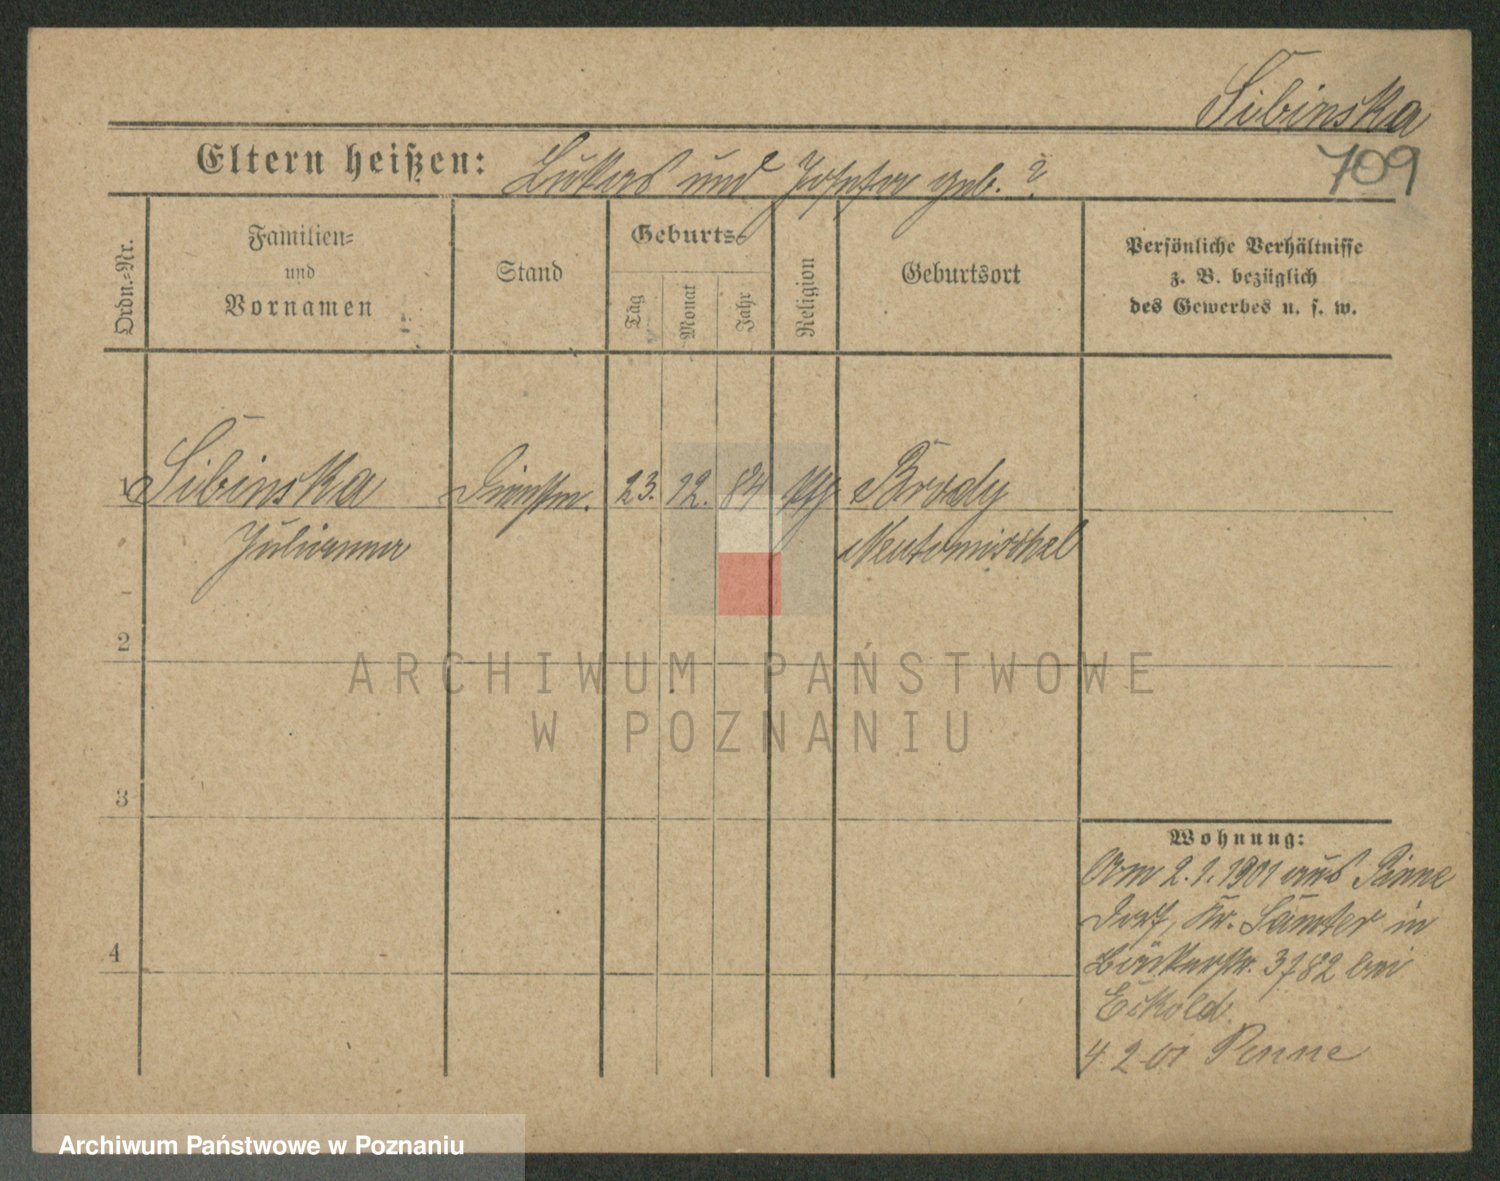 Sibinska
709
Eltern heißen: Lukas und Josefa geb. ?
Ordn.=Nr.
Familien=
und
Vornamen
Stand
Geburts=
Tag
Monat
Jahr
Religion
Geburtsort
Persönliche Verhältnisse
z. B. bezüglich
des Gewerbes u. s. w.
1 Sibinska Dienstm. 23. 12. 84 Brody
Julianna Neutomischel
2
3
4
Wohnung:
Am 2.1.1901 aus Pinne
Dorf, Kr. Samter in
Bäckerstr. 3782 bei
Eckold.
4 2 01 Pinne
ARCHIWUM PAŃSTWOWE
W POZNANIU
Archiwum Państwowe w Poznaniu